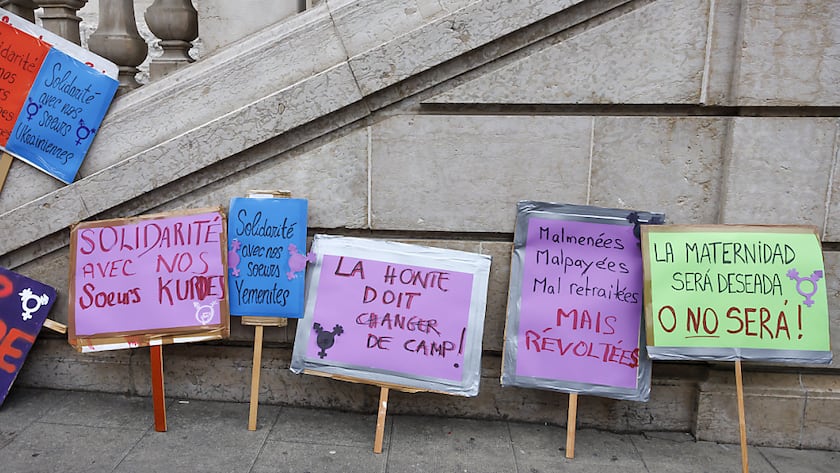 Solidarité
avec nos
soeurs
Ukrainiennes
SOLIDARITÉ
AVEC NOS
Soeurs KURDES
Solidarité
avec nos
soeurs
Yemenites
LA HONTE
DOIT
CHANGER
DE CAMP!
Malmenées
Malpayées
Mal retraitées
MAIS
RÉVOLTÉES
LA MATERNIDAD
SERÁ DESEADA
O NO SERÁ!